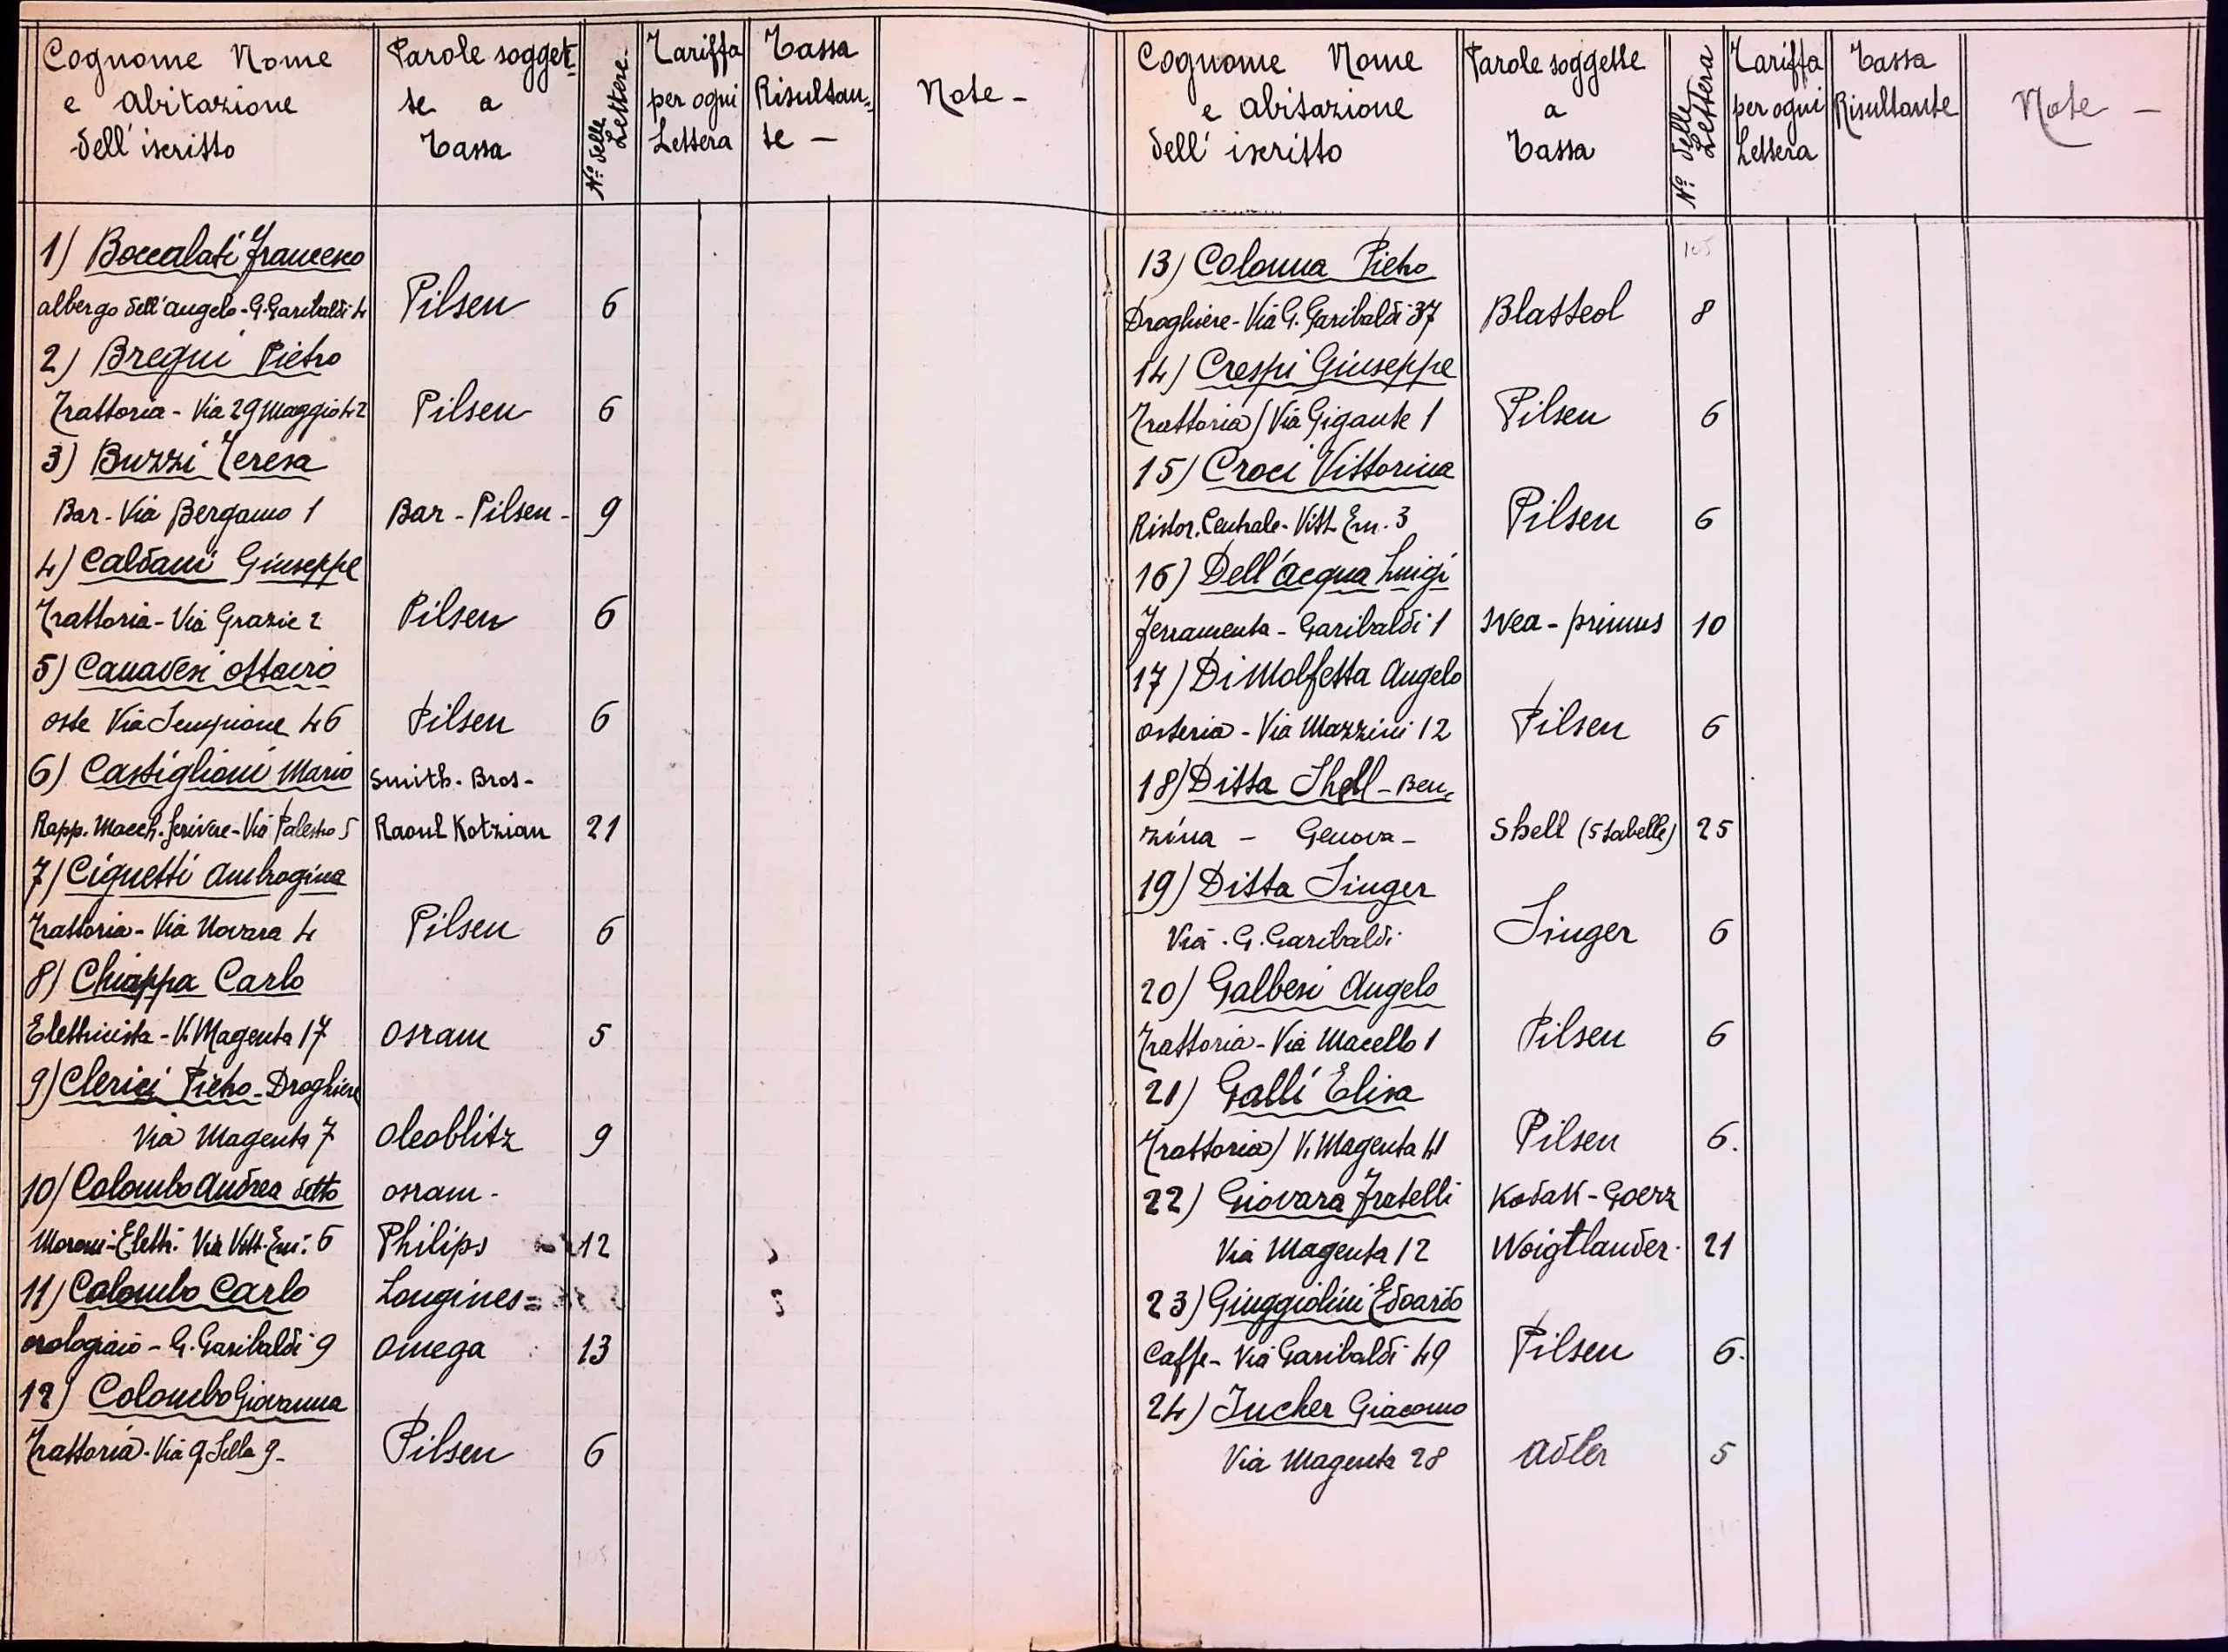 Cognome Nome
e abitazione
dell' iscritto
Parole sogget-
te a
Tassa
N° delle
Lettere
Tariffa
per ogni
Lettera
Tassa
Risultan-
te -
Note -
1) Boccalati Francesco
albergo dell'angelo - G. Garibaldi 4 Pilsen 6
2) Bregui Pietro
Trattoria - Via 29 Maggio 42 Pilsen 6
3) Buzzi Teresa
Bar - Via Bergamo 1 Bar - Pilsen - 9
4) Caldani Giuseppe
Trattoria - Via Grazie 2 Pilsen 6
5) Canavesi Ottavio
oste Via Sempione 46 Pilsen 6
6) Castiglioni Mario Smith - Bros -
Rapp. Macch. Scrivere - Via Palestro 5 Raoul Kotzian 21
7) Cignetti Ambrogina
Trattoria - Via Novara 4 Pilsen 6
8) Chiappa Carlo
Elettricista - V. Magenta 17 Osram 5
9) Clerici Pietro - Droghiere
Via Magenta 7 Oleoblitz 9
10) Colombo Andrea detto Osram -
Moroni - Elettr. Via Vitt. Em. 6 Philips 12
11) Colombo Carlo Longines =
orologiaio - G. Garibaldi 9 Omega 13
12) Colombo Giovanna
Trattoria - Via Q. Sella 9 - Pilsen 6
105
Cognome Nome
e abitazione
dell' iscritto
Parole soggette
a
Tassa
N° delle
Lettera
Tariffa
per ogni
Lettera
Tassa
Risultante
Note -
105
13) Colonna Pietro
Droghiere - Via G. Garibaldi 37 Blatteol 8
14) Crespi Giuseppe
Trattoria / Via Gigante 1 Pilsen 6
15) Croci Vittorina
Ristor. Centrale - Vitt. Em. 3 Pilsen 6
16) Dell'acqua Luigi
Ferramenta - Garibaldi 1 Svea - primus 10
17) Di Molfetta Angelo
osteria - Via Mazzini 12 Pilsen 6
18) Ditta Shell - Ben-
zina - Genova - Shell (5 tabelle) 25
19) Ditta Singer
Via . G. Garibaldi Singer 6
20) Galbesi Angelo
Trattoria - Via Macello 1 Pilsen 6
21) Galli Elisa
Trattoria / V. Magenta 41 Pilsen 6.
22) Giovara Fratelli Kodak - Goerz
Via Magenta 12 Woigtlander - 21
23) Giuggiolini Edoardo
Caffe - Via Garibaldi 49 Pilsen 6.
24) Jucker Giacomo
Via Magenta 28 Adler 5